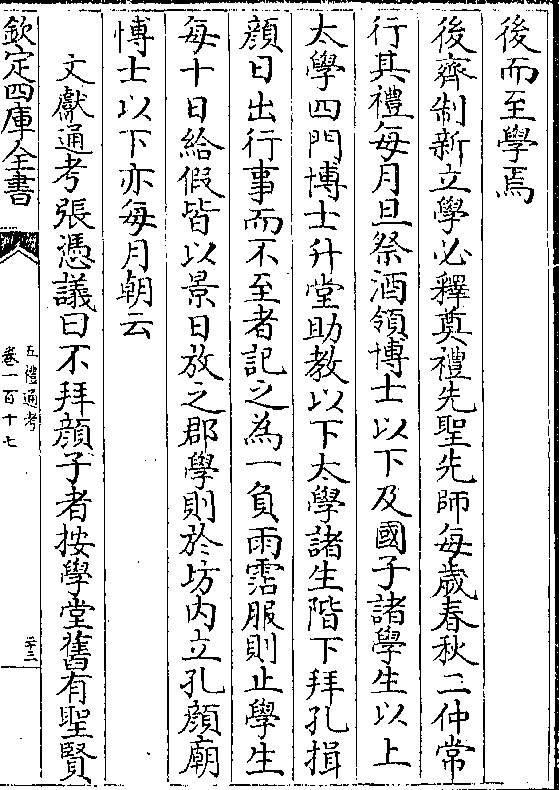 後而至學焉
後齊制新立學必釋奠禮先聖先師每歲春秋二仲常
行其禮每月旦祭酒領博士以下及國子諸學生以上
太學四門博士升堂助教以下太學諸生階下拜孔揖
顔日出行事而不至者記之為一負雨霑服則止學生
每十日給假皆以景日放之郡學則於坊内立孔顔廟
博士以下亦每月朝云
文獻通考張憑議曰不拜顔子者按學堂舊有聖賢
欽定四庫全書
五禮通考
卷一百十七
二十三